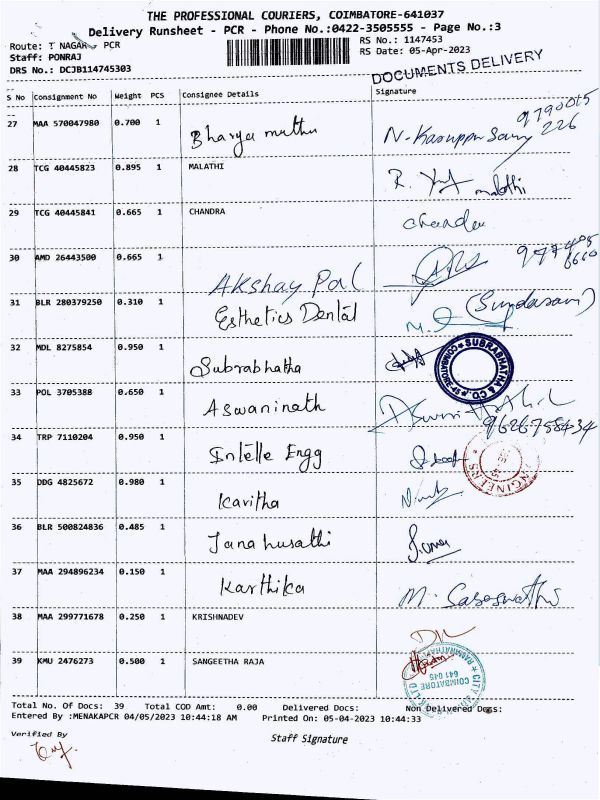 THE PROFESSIONAL COURIERS, COIMBATORE-641037
Delivery Runsheet - PCR - Phone No.:0422-3505555 - Page No.:3
Route: T NAGAR PCR
RS No.: 1147453
Staff: PONRAJ
RS Date: 05-Apr-2023
DRS No.: DCJB114745303
DOCUMENTS DELIVERY
S No Consignment No Weight PCS Consignee Details Signature
27 MAA 570047980 0.700 1 N. Karuppu Samy
226
28 TCG 40445823 0.895 1 MALATHI R. malathi
29 TCG 40445841 0.665 1 CHANDRA Chandra
30 AMD 26443500 0.665 1 Akshay Pal
31 BLR 280379250 0.310 1 Esthetics Dental
32 MDL 8275854 0.950 1 Subrabhatha SUBRABHATHA & CO.
33 POL 3705388 0.650 1 Aswaninath
34 TRP 7110204 0.950 1 Intelle Engg
35 DDG 4825672 0.980 1 Kavitha
36 BLR 500824836 0.485 1
37 MAA 294896234 0.150 1 Karthika
38 MAA 299771678 0.250 1 KRISHNADEV
39 KMU 2476273 0.500 1 SANGEETHA RAJA
COIMBATORE
641 045
Total No. Of Docs: 39 Total COD Amt: 0.00 Delivered Docs: Non Delivered Docs:
Entered By :MENAKAPCR 04/05/2023 10:44:18 AM Printed On: 05-04-2023 10:44:33
Verified By
Staff Signature